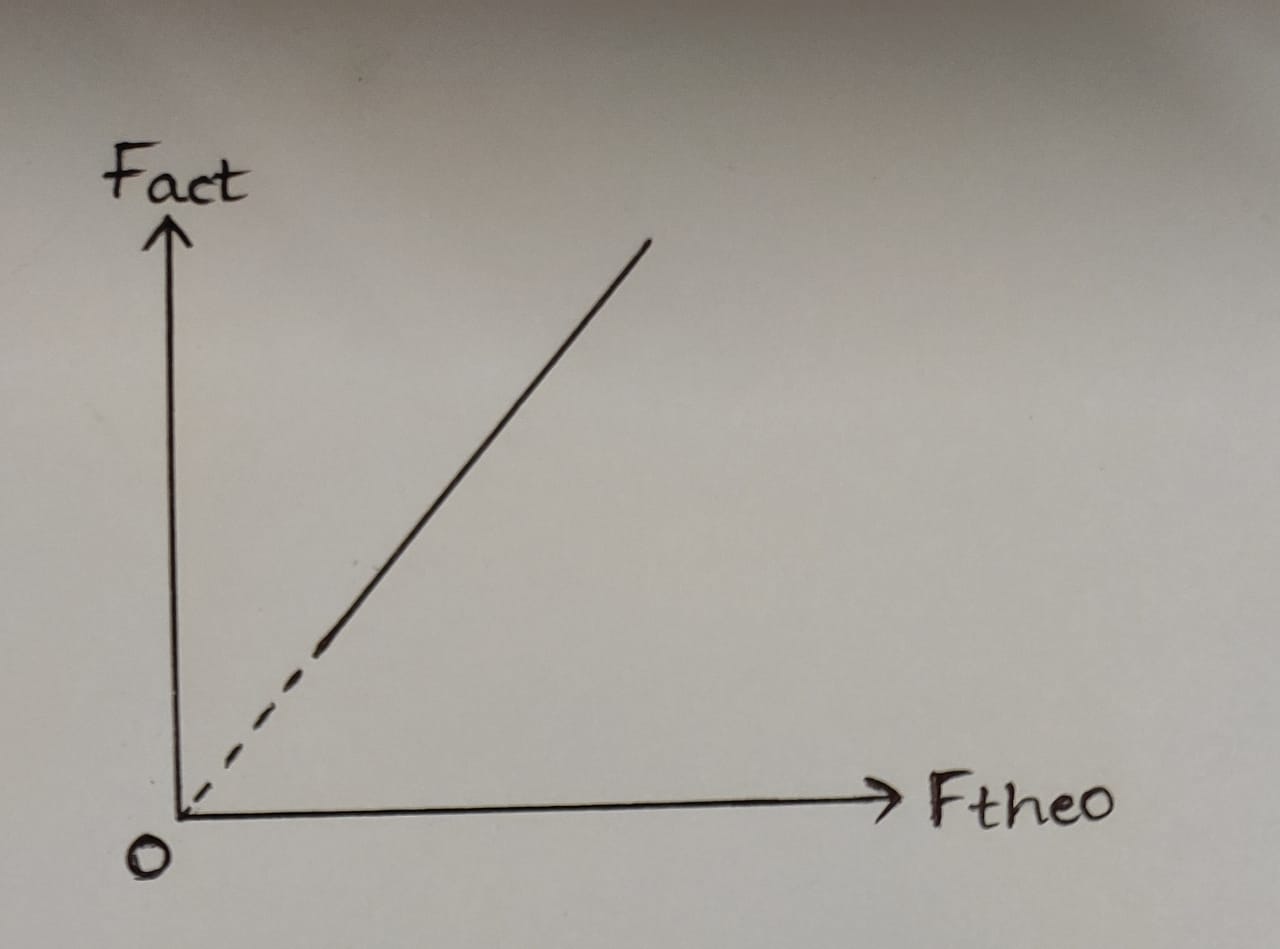 Fact
Ftheo
O